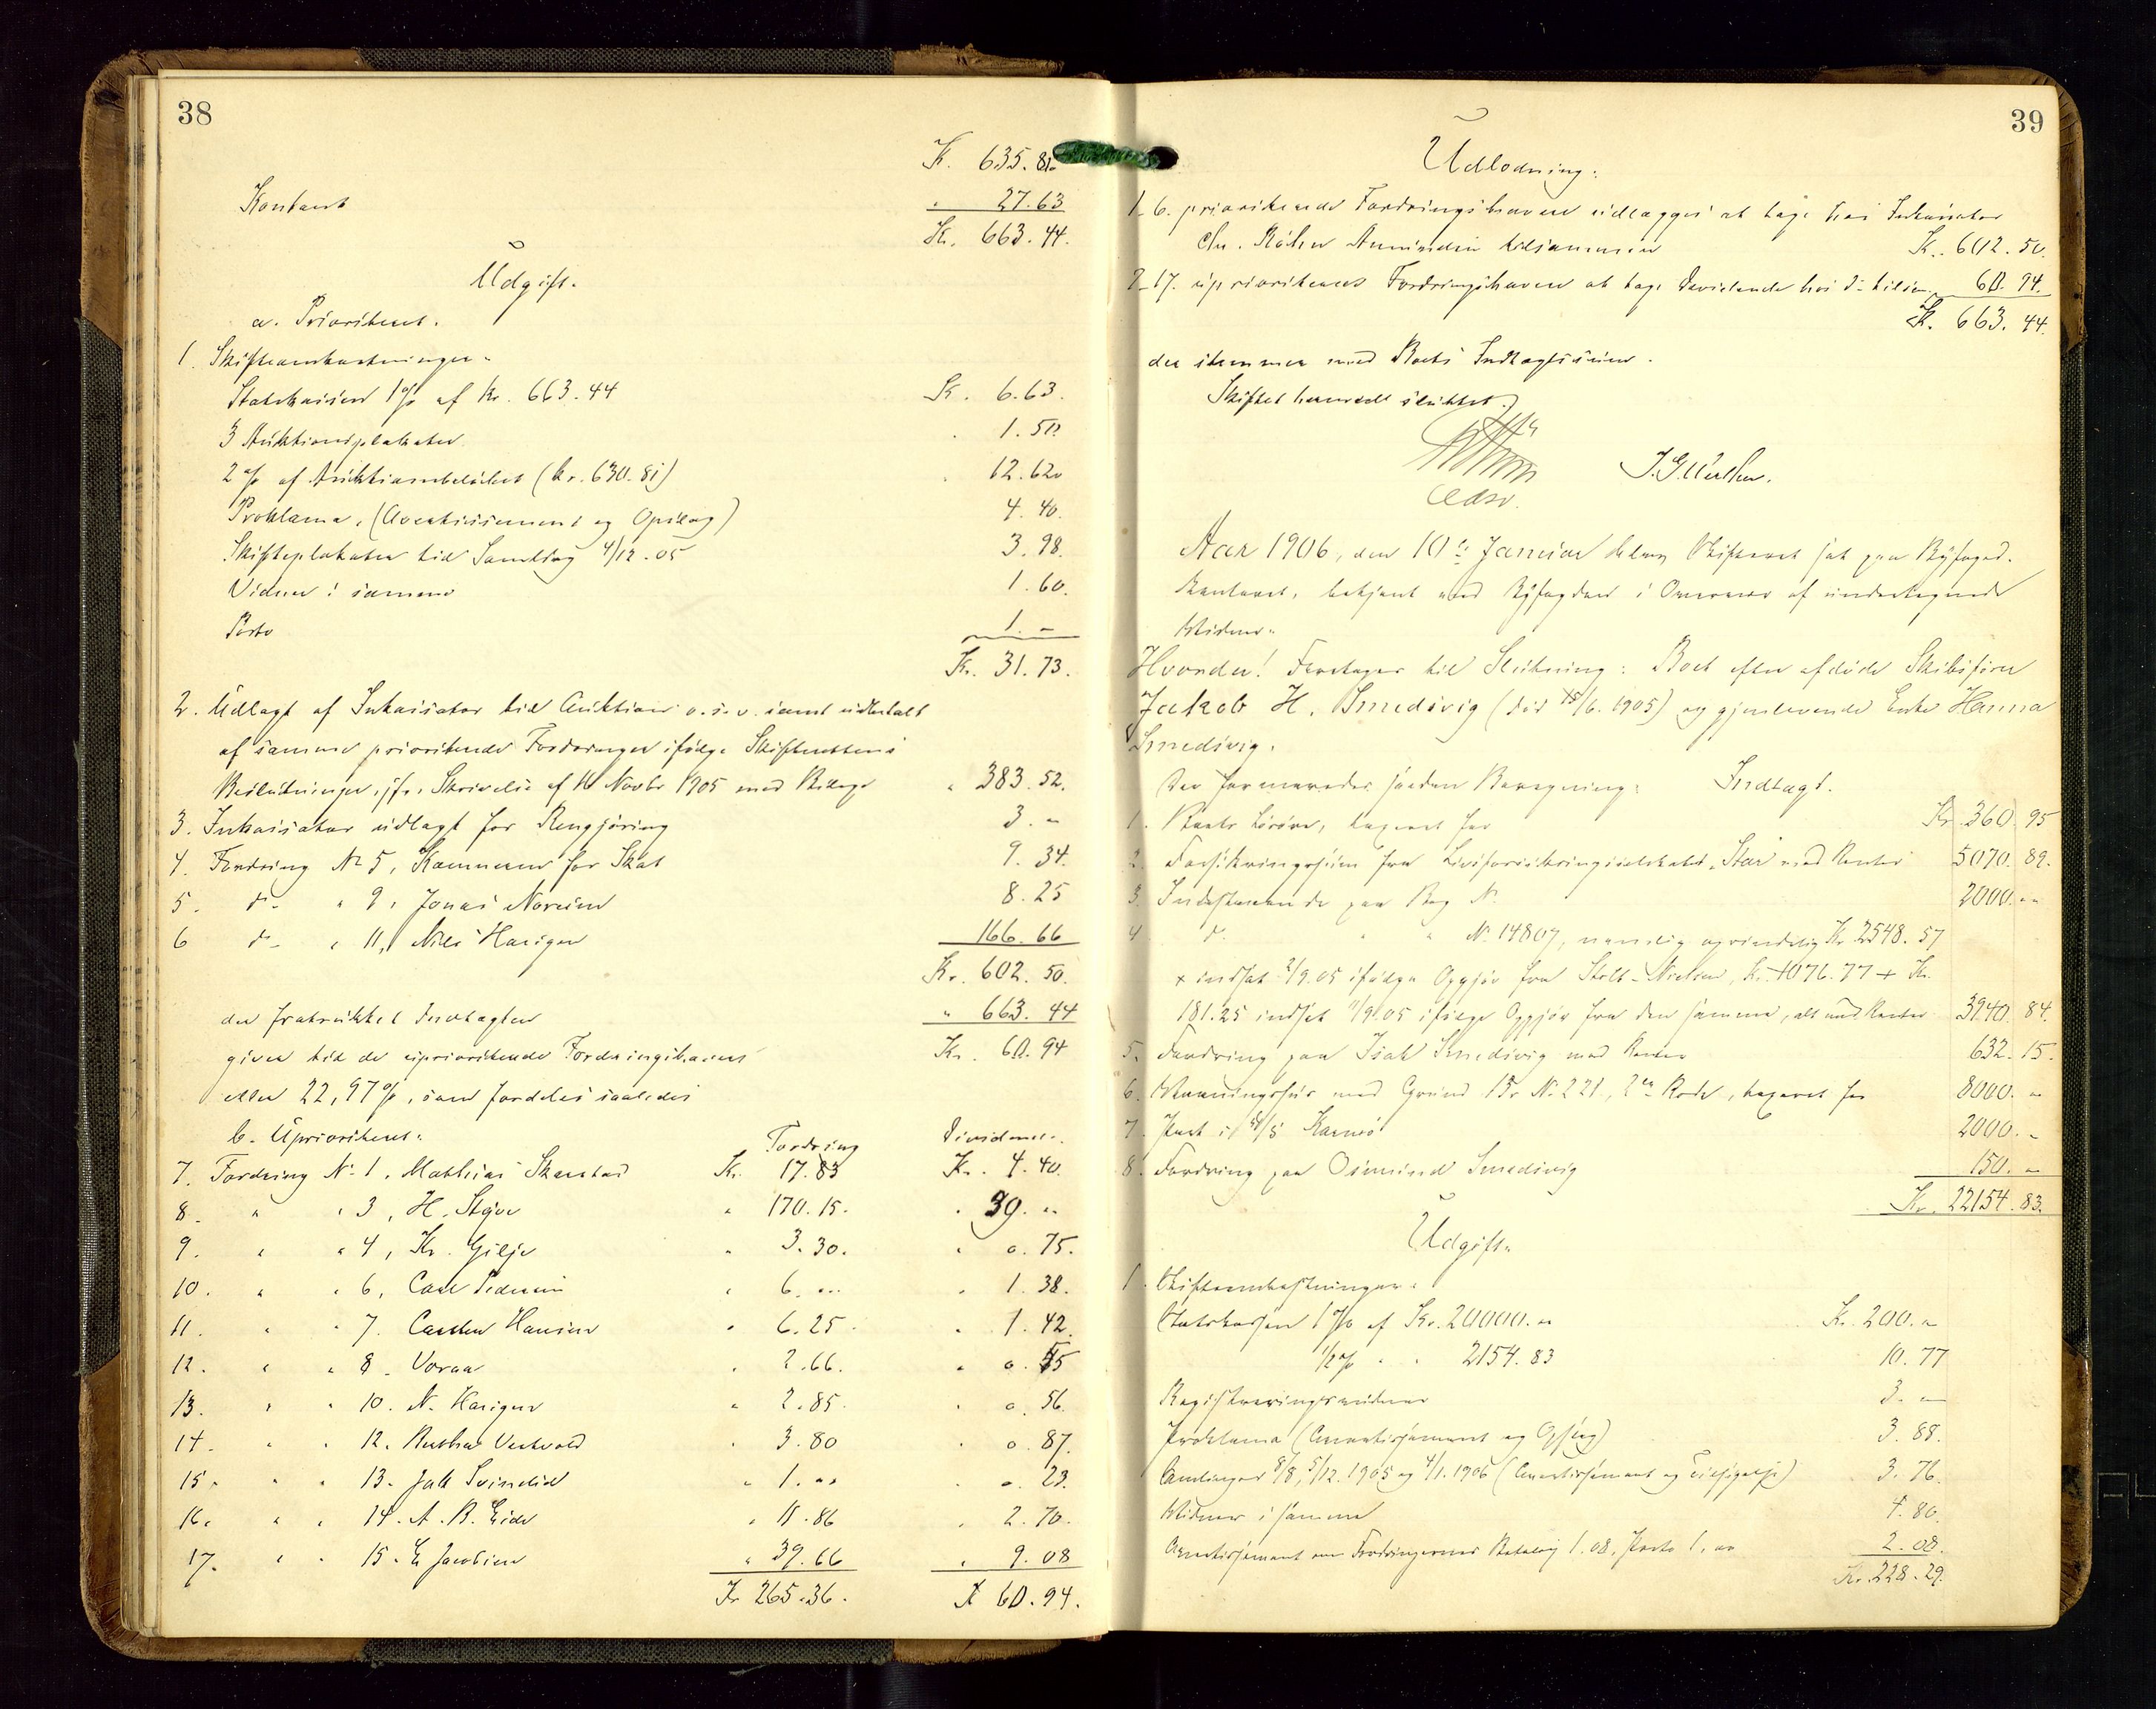 38
Kr. 635.81
Kontant " 27.63
Kr. 663.44.
Udgift.
a. Prioriteret.
1. Skifteomkostninger:
Statskassen 1% af Kr. 663.44 Kr. 6.63.
3 Auktionsplakater 1.50
2% af Auktionsbeløbet (kr. 630.81) 12.62
Proklama, (Avertissement og Opslag) 4.40.
Skifteplakater til Samling 4/12.05 3.98.
Vidner i samme 1.60.
Porto 1.-
Kr. 31.73.
2. Udlagt af Inkassator til Auktion o.s.v. samt udbetalt
af samme prioriterede Fordringer ifølge Skifterettens
Beslutninger, jfr. Skrivelse af 16 Novbr 1905 med Bilage " 383.52.
3. Inkassator udlagt for Rengjøring 3.-
4. Fordring No 5, Kæmneren for Skat 9.34.
5. do " 9, Jonas Noreim 8.25
6 do " 11, Nils Hauge 166.66
Kr. 602.50.
der fratrukket Indtægten " 663.44
giver til de uprioriterede Fordringshavere Kr. 60.94
eller 22,97%, som fordeles saaledes
b. Uprioriteret: Fordring Dividende.
7. Fordring No 1. Mathias Skarstad Kr. 17.83 Kr. 4.40.
8. " " 3, H. Støve " 170.15. " 39.-
9. " " 4, Kr. Gilje " 3.30. " 0.75.
10. " " 6, Carl Pedersen " 6.- " 1.38.
11. " " 7. Carsten Hansen " 6.25 " 1.42.
12. " " 8. Voraa " 2.66. " 0.55
13. " " 10. N. Hauge " 2.85. " 0.56.
14. " " 12. Vestvold " 3.80 " 0.87.
15. " " 13. Jak Svindlid " 1.- " 0.23.
16. " " 14. A. B. Eide " 11.86 " 2.70.
17. " " 15. E Jacobsen " 39.66 " 9.08
Kr 265.36. Kr 60.94.
39
Udlodning:
1-6. prioriterede Fordringshavere udlægges at tage hos Inkassator
Chr. Amundsen tilsammen Kr. 602.50.
7-17. uprioriterede Fordringshavere at tage Dividende hos do tilsm. 60.94.
Kr. 663.44.
der stemmer med Boets Indtægtssum.
Skiftet hermed sluttet.
Edsv.
Aar 1906, den 10de Januar blev Skifteret sat paa Byfoged-
kontoret, betjent ved Byfogden i Overvær af undertegnede
Vidner.
Hvorda! Foretages til Slutning: Boet efter afdøde Skibsfører
Jakob H. Smedsvig (død 15/6. 1905) og gjenlevende Enke Hanna
Smedsvig.
Der formeredes saadan Beregning: Indtægt.
1. Boets Løsøre, taxeret for Kr. 360.95
2. Forsikringssum fra Livsforsikringsselskabet "Star" med Renter 5070.89.
3. Indestaaende paa Bog No 2000.-
4 do " " No 14807, nemlig oprindelig Kr. 2548.57
+ indsat 2/9.05 ifølge Opgjør fra Stolt-Nielsen, Kr. 1076.77 + Kr.
181.25 indsat 11/9.05 ifølge Opgjør fra den samme, alt med Renter 3940.84.
5. Fordring paa Isak Smedsvig med Renter 632.15.
6. Vaaningshus med Grund Br. No 221, 2en Rode, taxeret for 8000.-
7. Part i D/S Karmø 2000.-
8. Fordring paa Osmund Smedsvig 150.-
Kr. 22154.83.
Udgift.
1. Skifteomkostninger:
Statskassen 1% af Kr. 20000.- Kr. 200.-
1/2% " " 2154.83 10.77
Registreringsvidner 3.-
Proklama (Avertissement og Opslag) 3.88.
Samlinger 8/8, 5/12. 1905 og 4/1. 1906 (Avertissement og Tilsigelse) 3.76.
Vidner i samme 4.80.
Avertissement om Fordringernes Betaling 1.08, Porto 1.00 2.08.
Kr. 228.29.